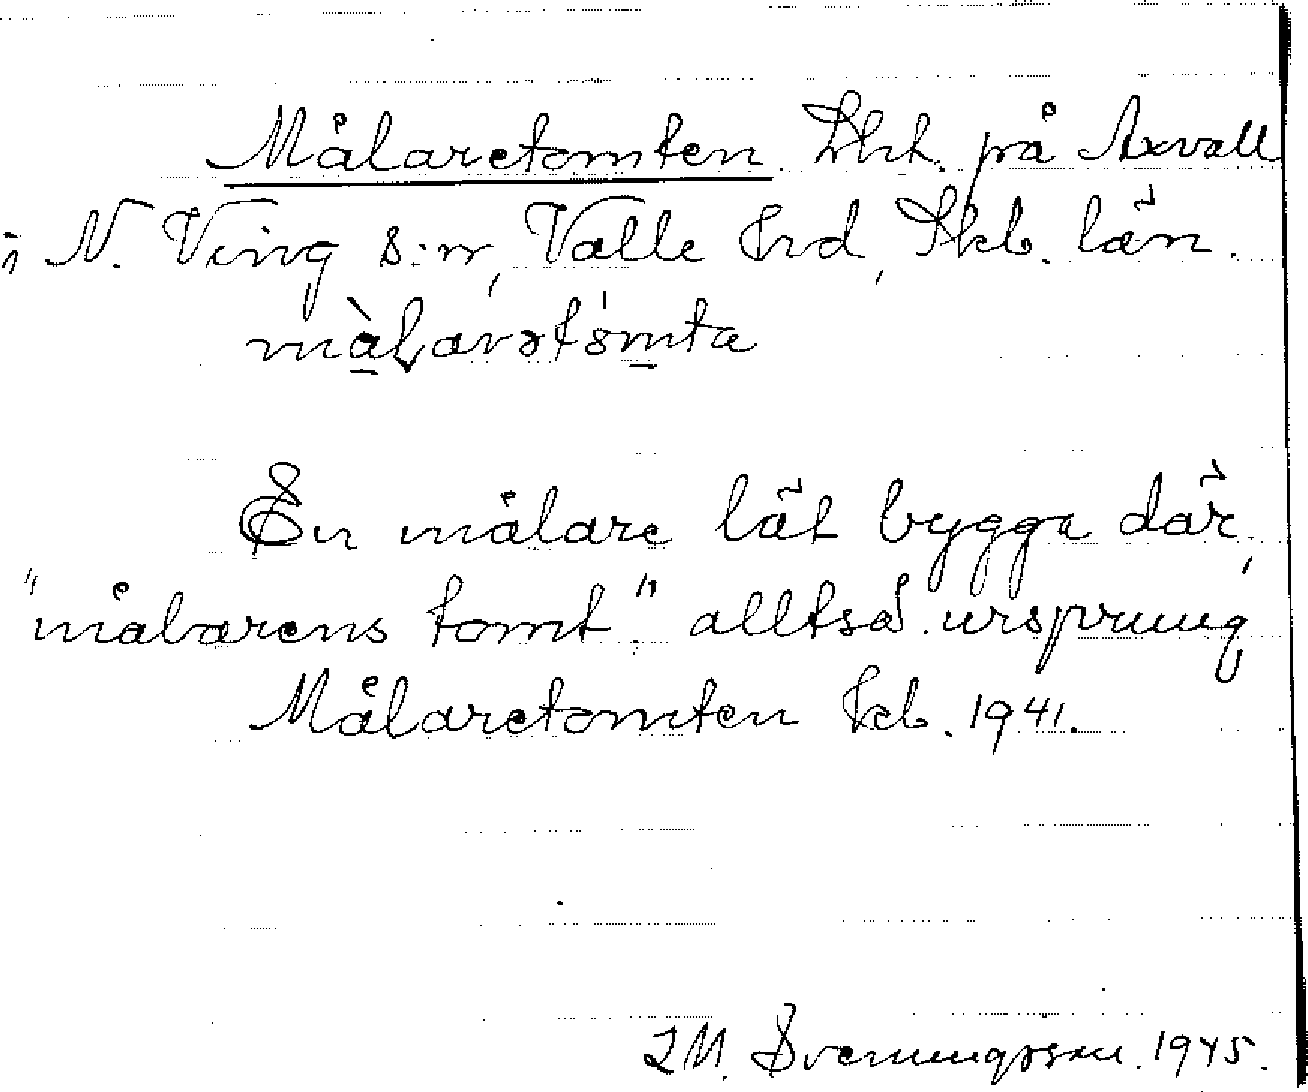 Målaretomten Lht. på Axvall
i N. Ving s:n, Valle hrd, Skb. län.
En målare lät bygga där,
"målarens tomt." alltså ursprung
Målaretomten Jcb. 1941.
I M. Svenungsson. 1945.